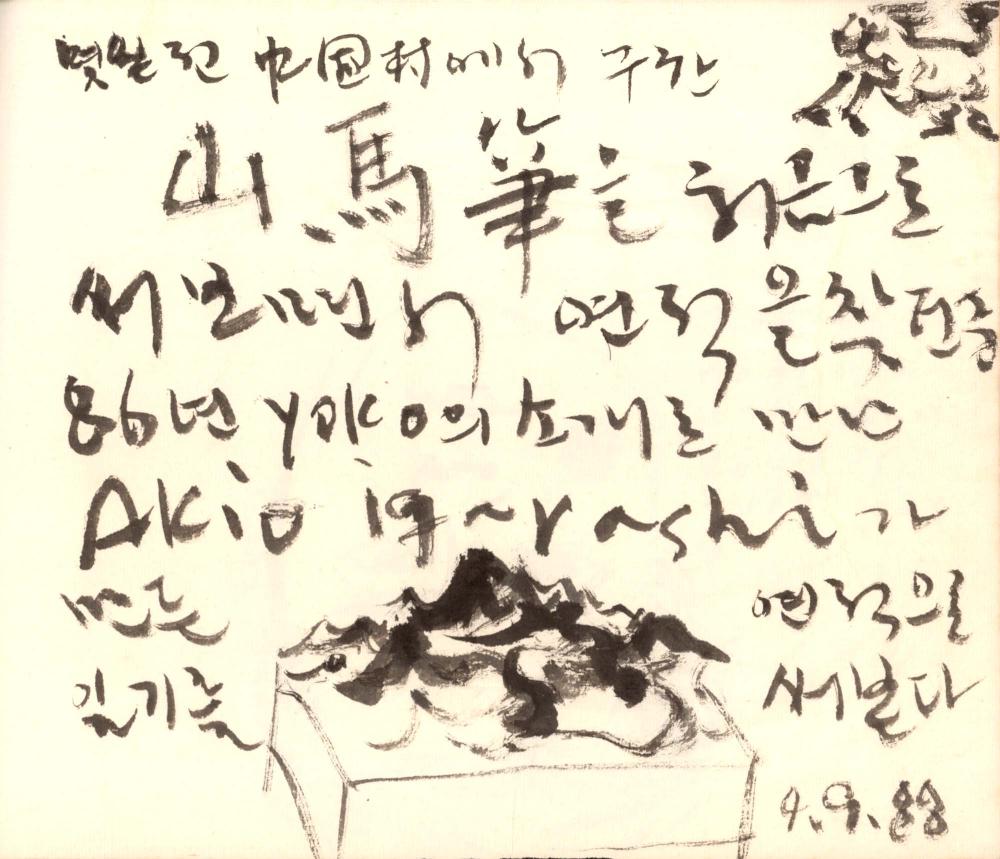 몇일전 中国村에서 구한
山馬筆을 처음으로
써보면서 연적을 찾던중
86년 yoko의 소개로 만난
AKio igarashi가
만든 연적을
써본다
9.9.88